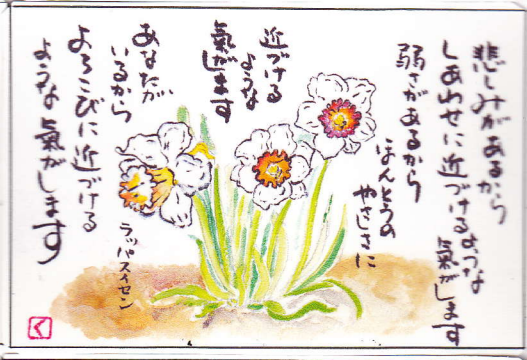 悲しみがあるから
しあわせに近づけるような
氣がします
弱さがあるから
ほんとうの
やさしさに
近づける
ような
氣がします
あなたが
いるから
よろこびに近づける
ような氣がします
ラッパスイセン
く